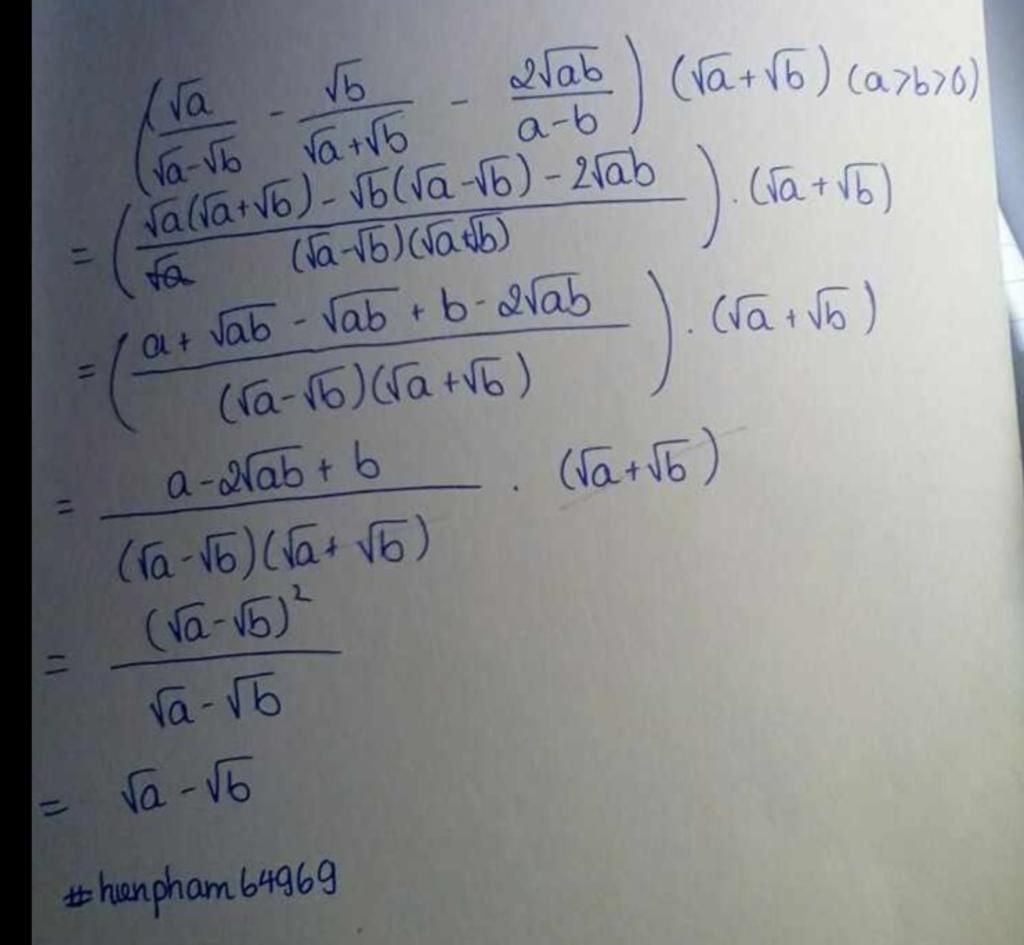 (√a/(√a-√b) - √b/(√a+√b) - 2√ab/(a-b)) (√a+√b) (a>b>0)
= ((√a(√a+√b) - √b(√a-√b) - 2√ab)/((√a-√b)(√a+√b))) . (√a+√b)
= ((a+√ab - √ab + b - 2√ab)/((√a-√b)(√a+√b))) . (√a+√b)
= (a-2√ab+b)/((√a-√b)(√a+√b)) . (√a+√b)
= (√a-√b)²/(√a-√b)
= √a-√b
#hienpham64969